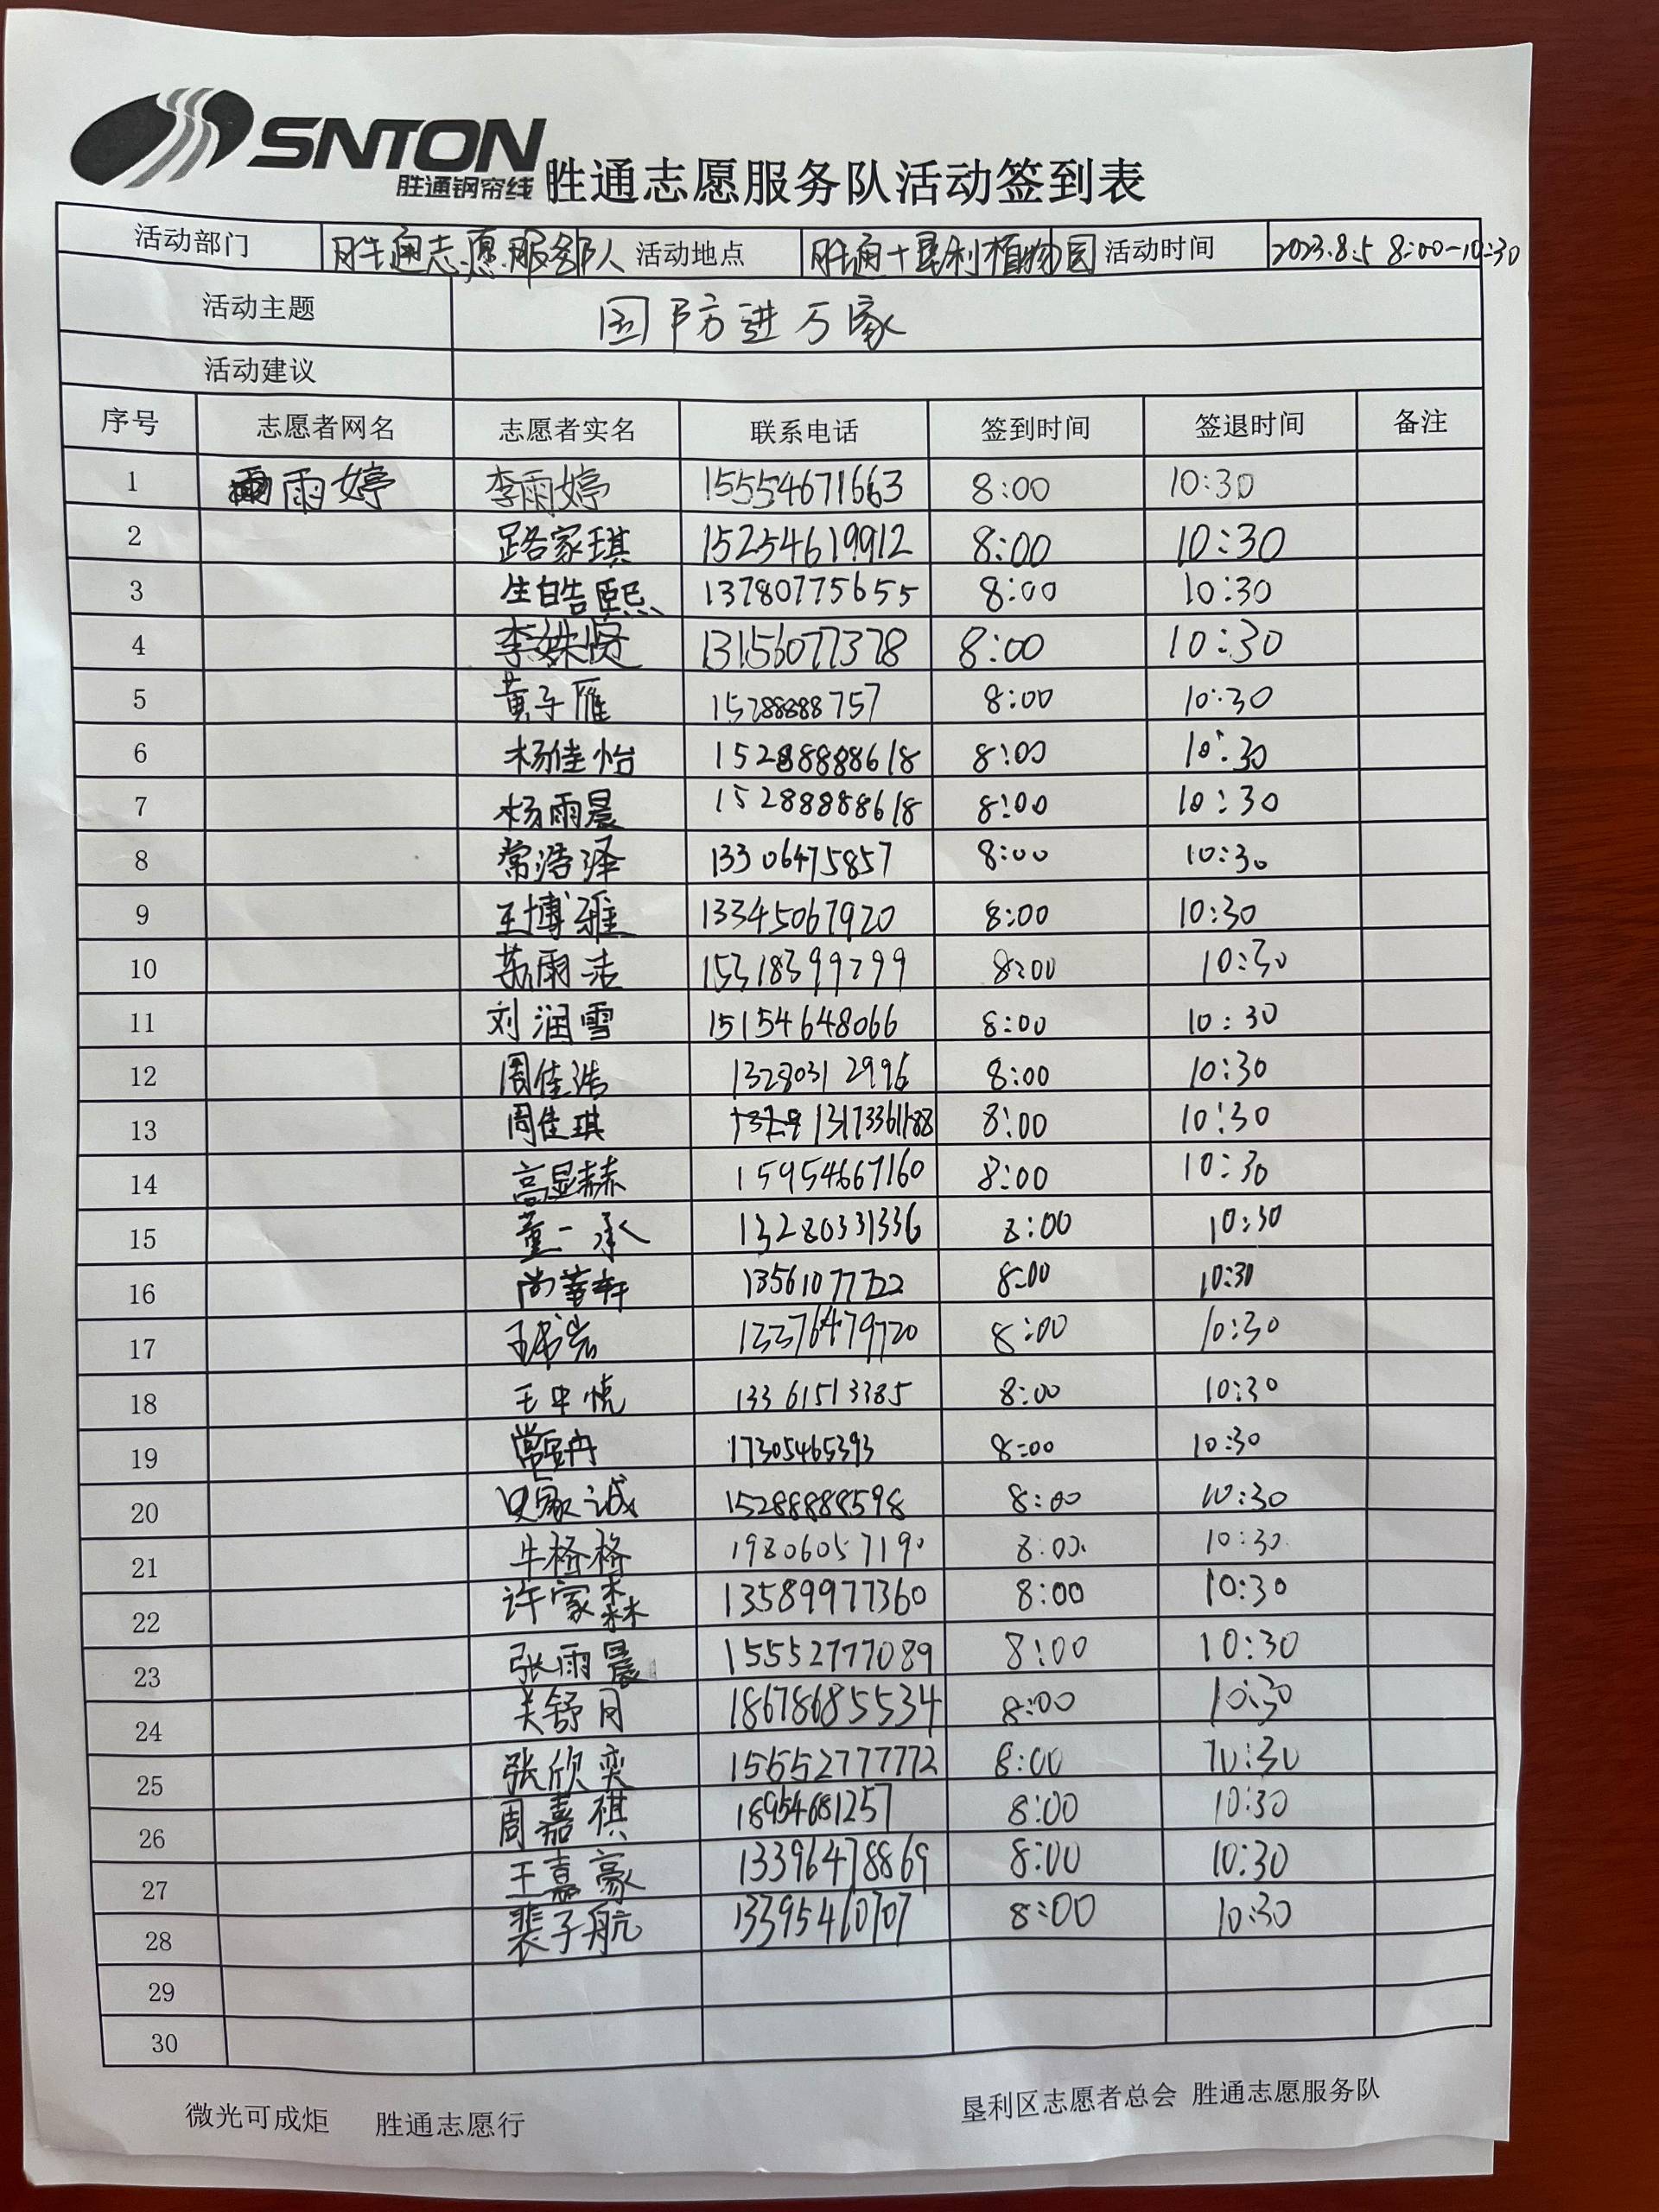 SNTON
胜通钢帘线 胜通志愿服务队活动签到表
活动部门 胜通志愿服务队 活动地点 胜通+垦利植物园 活动时间 2023.8.5 8:00-10:30
活动主题 国防进万家
活动建议
序号 志愿者网名 志愿者实名 联系电话 签到时间 签退时间 备注
1 雨雨婷 李雨婷 15554671663 8:00 10:30
2 路家琪 15254619912 8:00 10:30
3 生皓熙 13780775655 8:00 10:30
4 李姝贤 13156077378 8:00 10:30
5 黄子雁 15288888757 8:00 10:30
6 杨佳怡 15288888618 8:00 10:30
7 杨雨晨 15288888618 8:00 10:30
8 常浩泽 13306475857 8:00 10:30
9 王博雅 13345067920 8:00 10:30
10 苏雨洁 15318399299 8:00 10:30
11 刘润雪 15154648066 8:00 10:30
12 周佳浩 13280312996 8:00 10:30
13 周佳琪 13173361188 8:00 10:30
14 高显赫 15954667160 8:00 10:30
15 董一承 13280331336 8:00 10:30
16 13561077722 8:00 10:30
17 王书岩 13376479720 8:00 10:30
18 王中悦 13361513385 8:00 10:30
19 17305465393 8:00 10:30
20 史家诚 15288888598 8:00 10:30
21 牛格格 19806057190 8:00 10:30
22 许家森 13589977360 8:00 10:30
23 张雨晨 15552777089 8:00 10:30
24 关舒月 18678685534 8:00 10:30
25 张欣奕 15552777772 8:00 10:30
26 周嘉祺 18954681257 8:00 10:30
27 王嘉豪 13396478869 8:00 10:30
28 裴子航 13395460707 8:00 10:30
29
30
微光可成炬 胜通志愿行 垦利区志愿者总会 胜通志愿服务队